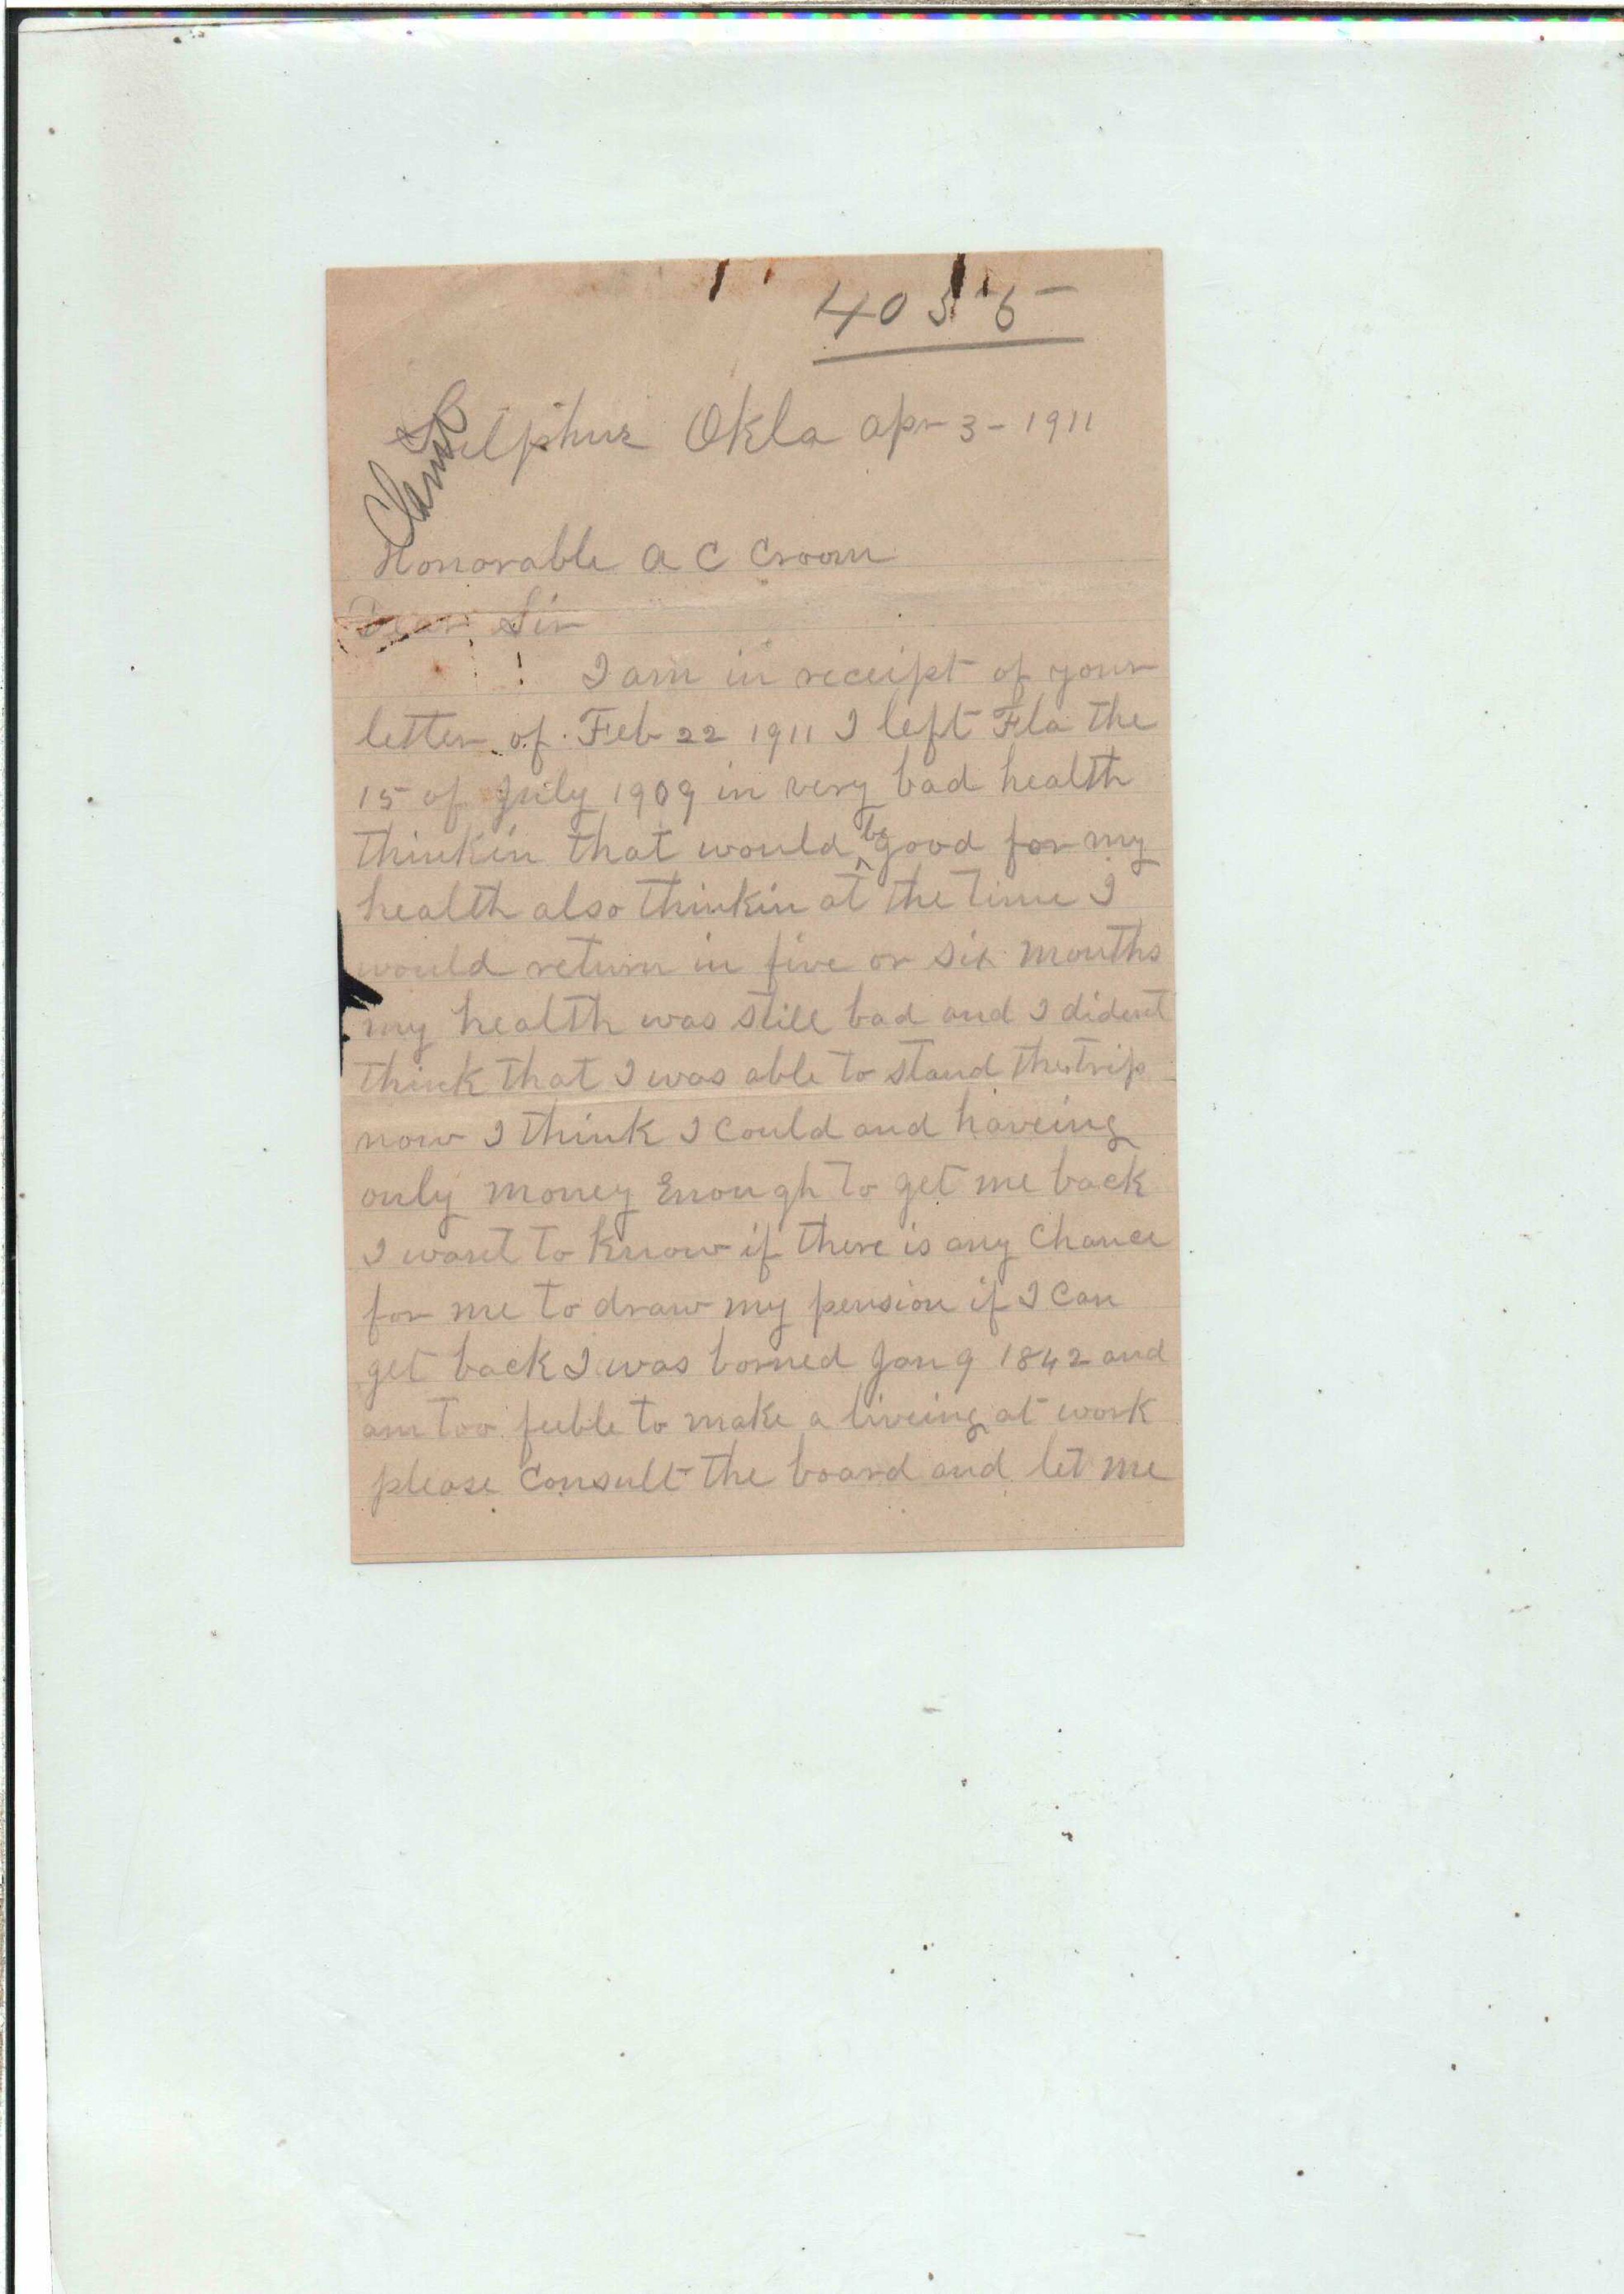 Sulphur Okla apr 3 - 1911
Honorable A C Croom
Dear Sir
I am in receipt of your
letter of Feb 22 1911 I left Fla the
15 of July 1909 in very bad health
thinkin that would be good for my
health also thinkin at the time I
would return in five or six months
my health was still bad and I dident
think that I was able to stand the trip
now I think I could and haveing
only money Enough to get me back
I want to know if there is any chance
for me to draw my pension if I can
get back I was borned Jan 9 1842 and
am too feeble to make a liveing at work
please consult the board and let me